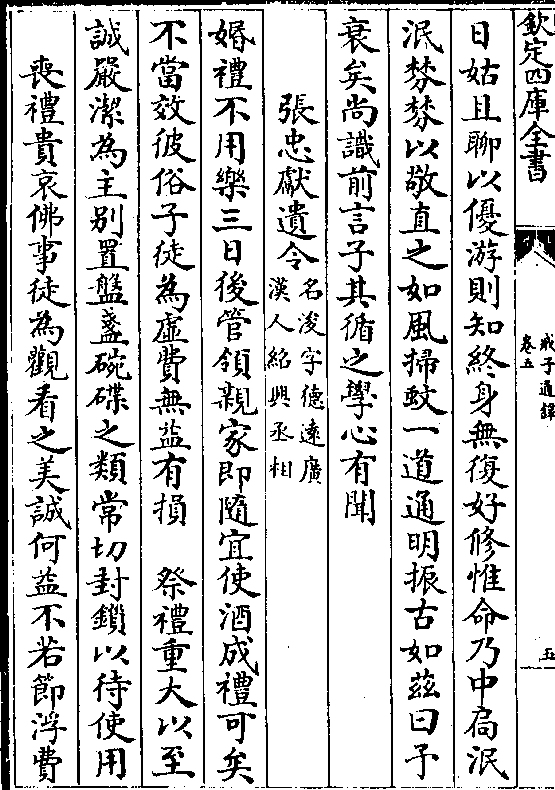 欽定四庫全書
戒子通錄
卷五
五
日姑且聊以優游則知終身無復好修惟命乃中扃泯
泯棼棼以敬直之如風掃蚊一道通明振古如兹曰予
衰矣尚識前言子其循之學心有聞
張忠獻遺令名浚字德遠廣
漢人紹興丞相
婚禮不用樂三日後管領親家即隨宜使酒成禮可矣
不當效彼俗子徒為虚費無益有損　祭禮重大以至
誠嚴潔為主别置盤盞碗碟之類常切封鎖以待使用
喪禮貴哀佛事徒為觀看之美誠何益不若節浮費